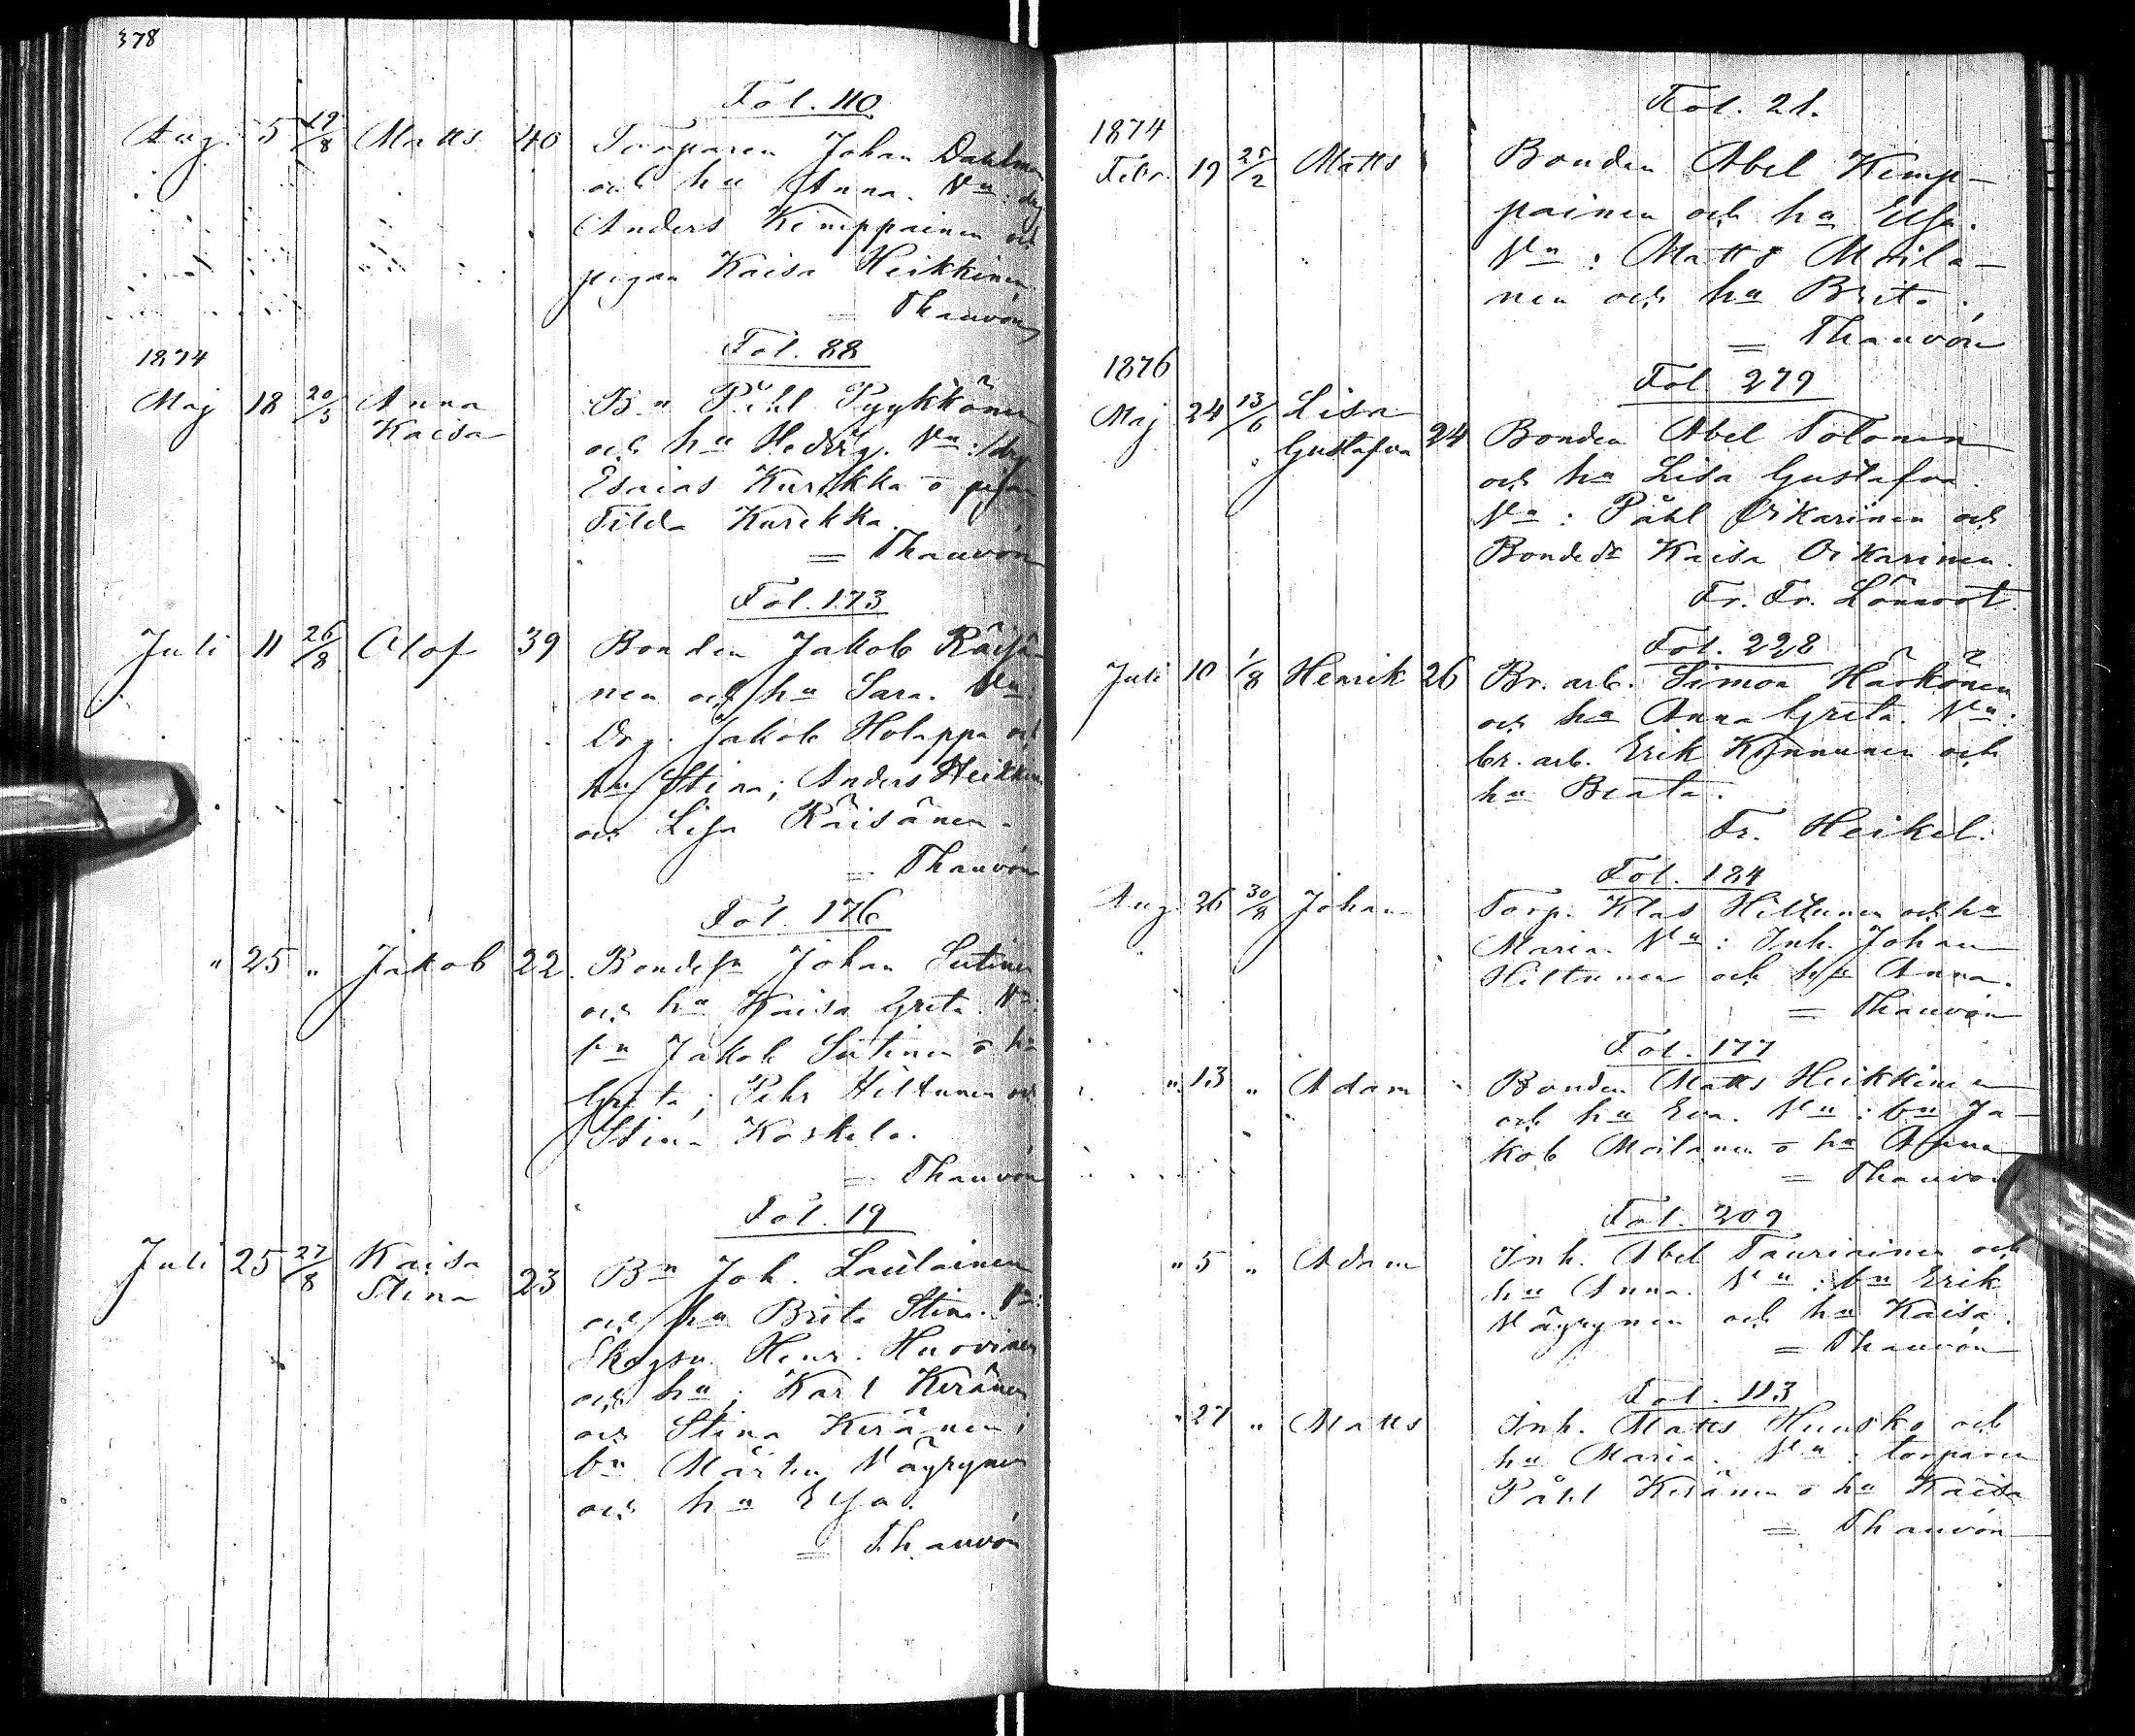 378
Fol. 110
Aug. 5 19/8 Matts 40 Torparen Johan Dahlman
och hu Anna. Vn: drg
Anders Kemppainen och
pigan Kaisa Heikkinen.
= Thauvón
1874
Fol. 88
Maj 18 20/5 Anna Bn Påhl Pyykkönen
Kaisa och hu Hedvig. Vn: drg
Esaias Kurikka o pigan
Tilda Kurikka.
= Thauvón
Fol. 173
Juli 11 26/8 Olof 39 Bonden Jakob Räisä-
nen och hu Sara. Vn:
Drg. Jakob Holappa och
hu Stina; Anders Heikkinen
och Lisa Räisänen.
= Thauvón
Fol. 176
" 25 " Jakob 22. Bondesn Johan Sutinen
och hu Kaisa Greta. Vn:
sn Jakob Sutinen o hu
Greta; Pehr Hiltunen och
Stina Koskelo.
= Thauvón
Fol. 19
Juli 25 27/8 Kaisa
Stina 23 Bn Joh. Laulainen
och hu Brita Stina. Vn:
Henr. Huovinen
och hu; Karl Keränen
och Stina Keränen;
bn Mårten Väyrynen
och hu Elsa.
= Thauvón
Fol. 21.
1874
Febr. 19 25/2 Matts Bonden Abel Kemp-
painen och hu Elsa.
Vn: Matts Moila-
nen och hu Brita.
= Thauvón
1876
Fol 279
Maj 24 13/6 Lisa
Gustafva 24 Bonden Abel Tolonen
och hu Lisa Gustafva.
Vn: Påhl Oikarinen och
Bondedr Kaisa Oikarinen.
Fr. Fr. Lönnrot.
Fol. 228
Juli 10 1/8 Henrik 26 Br. arb. Simon Härkönen
och hu Anna Greta. Vn:
br. arb. Erik Kinnunen och
hu Beata.
Fr. Heikel.
Fol. 184
Aug. 26 30/8 Johan Torp. Klas Hiltunen och hu
Maria. Vn: Inh. Johan
Hiltunen och hu Anna.
= Thauvón
Fol. 177
" 13 " Adam Bonden Matts Heikkinen
och hu Eva. Vn: bn Ja-
kob Moilanen o hu Anna
= Thauvón
Fol. 209
" 5 " Adam Inh. Abel Tauriainen och
hu Anna. Vn: bn Erik
Väyrynen och hu Kaisa.
= Thauvón
Fol. 113
" 27 " Matts Inh. Matts Huusko och
hu Maria. Vn: torparen
Påhl Keränen o hu Kaisa
= Thauvón